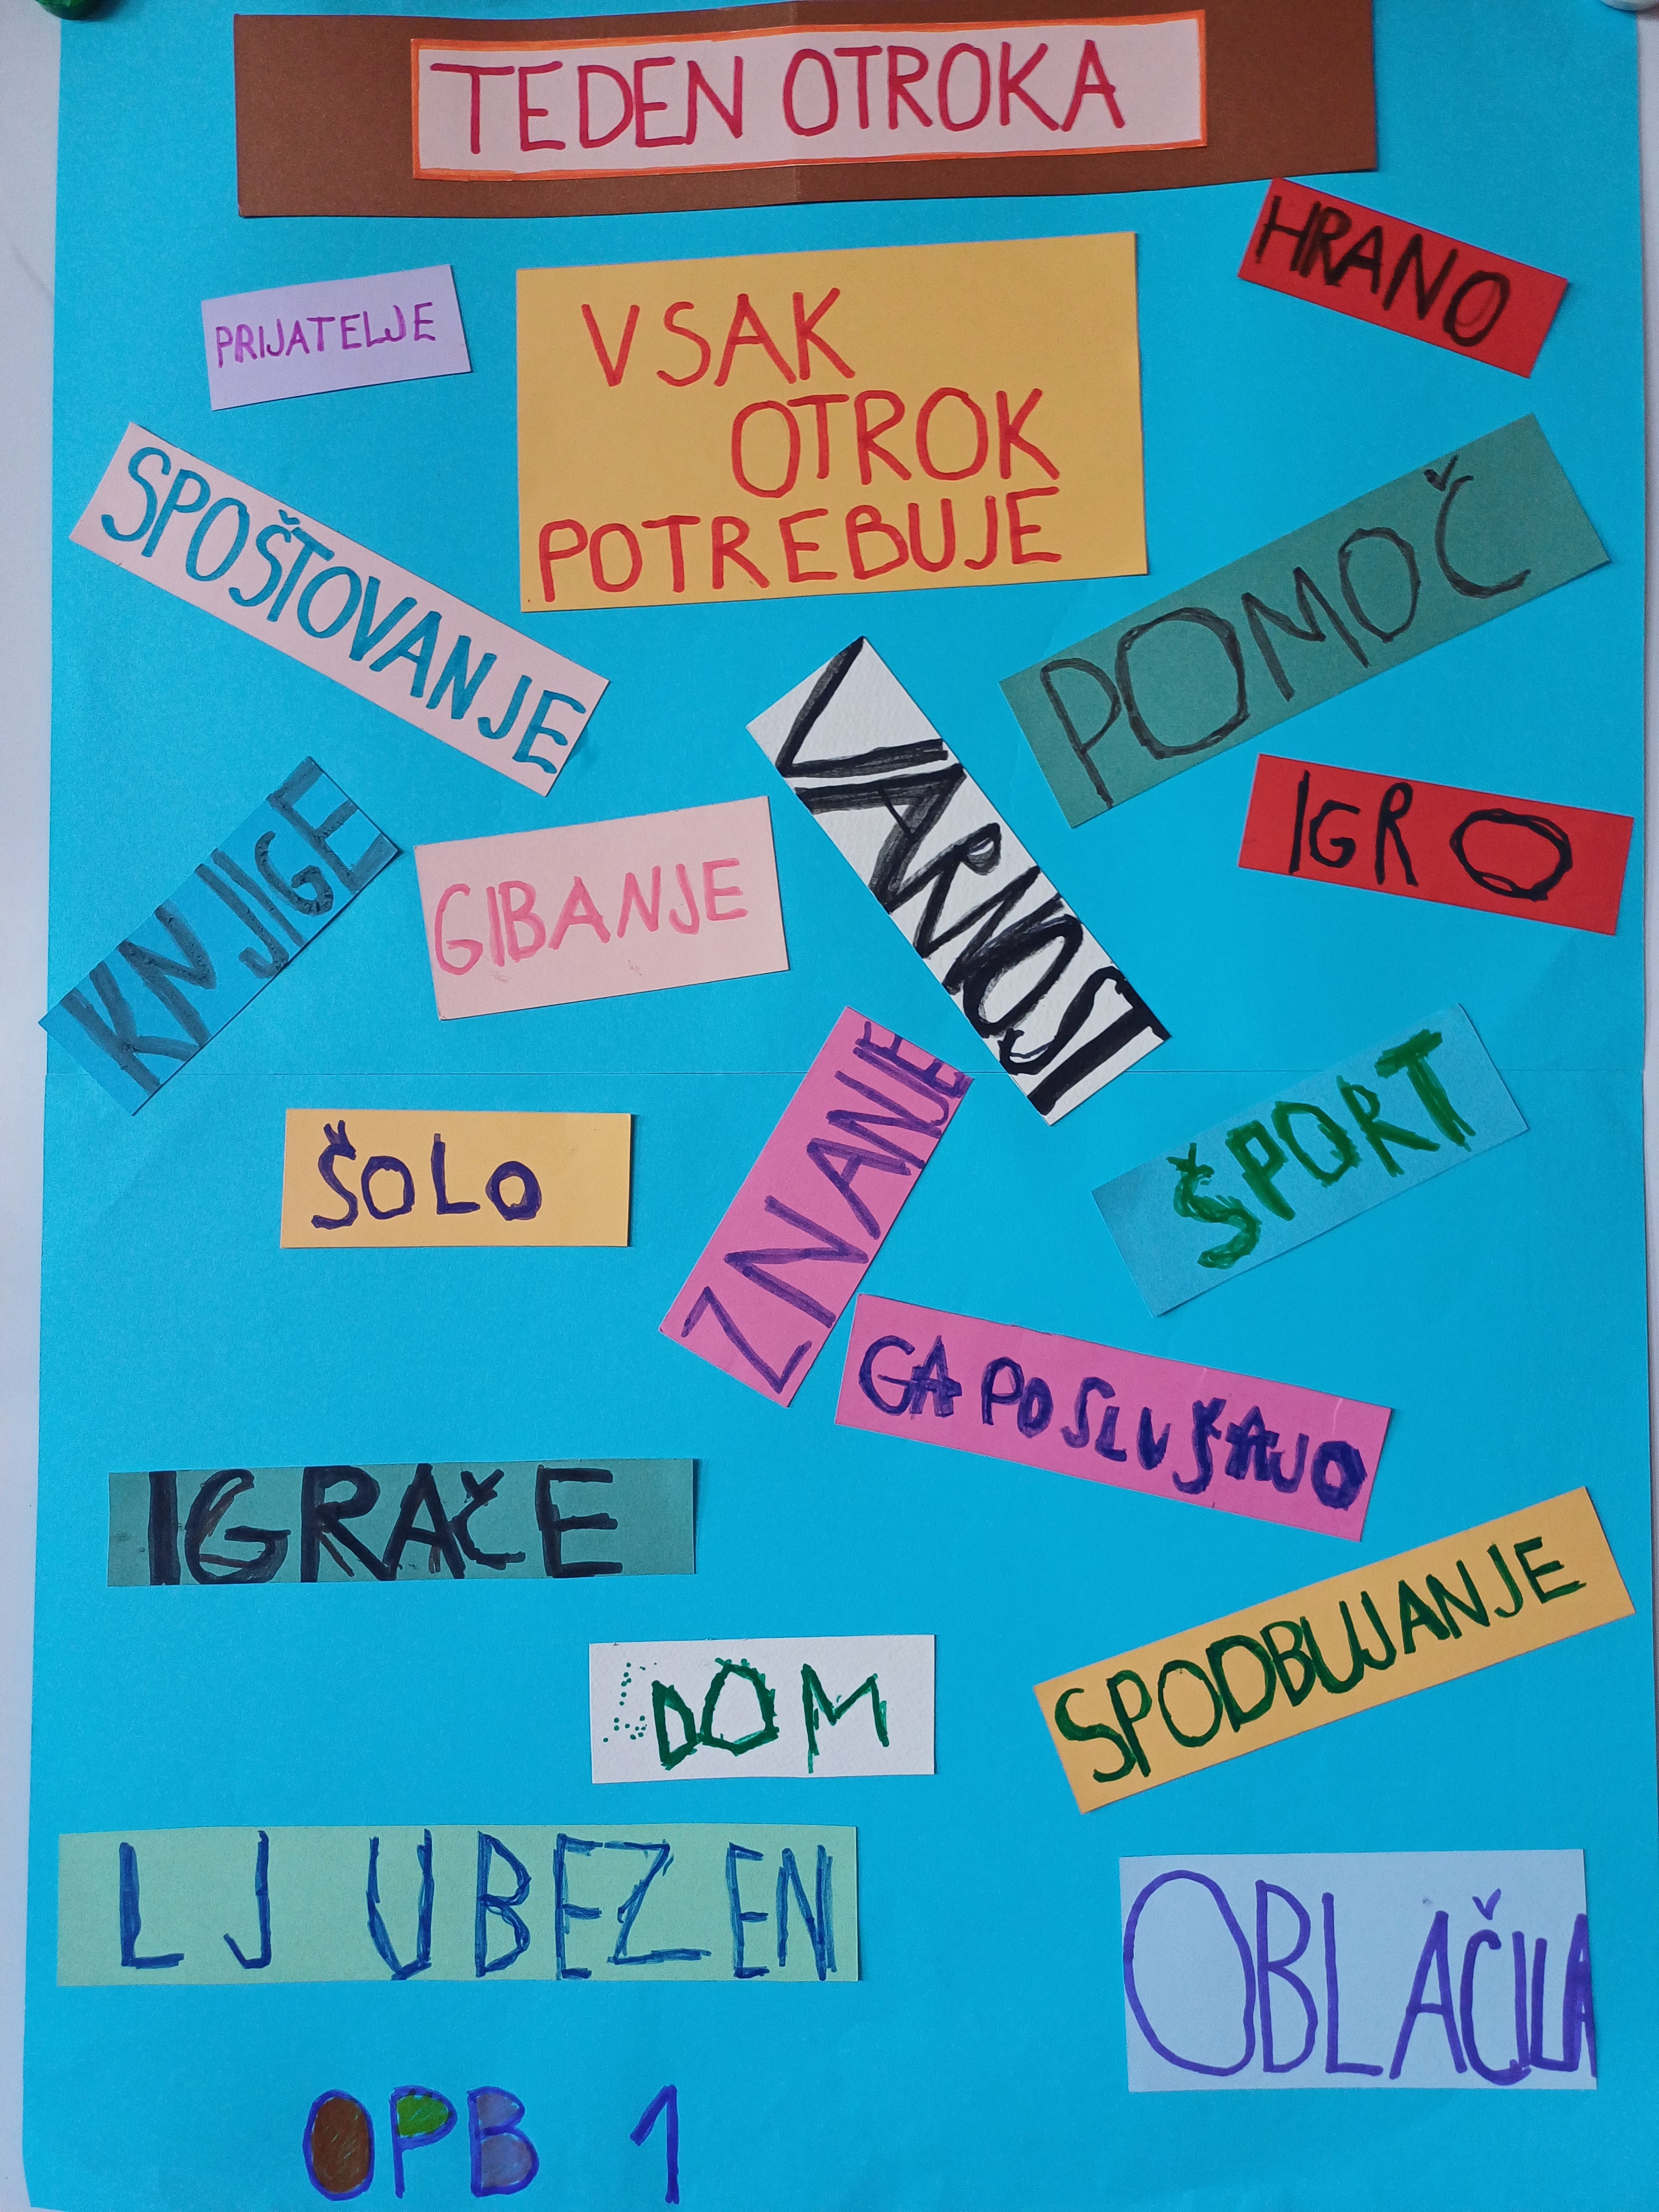 TEDEN OTROKA
HRANO
PRIJATELJE
VSAK
OTROK
POTREBUJE
SPOŠTOVANJE
POMOČ
VARNOST
IGRO
KNJIGE
GIBANJE
ZNANJE
ŠPORT
ŠOLO
GA POSLUŠAJO
IGRAČE
SPODBUJANJE
DOM
LJUBEZEN
OBLAČILA
OPB 1